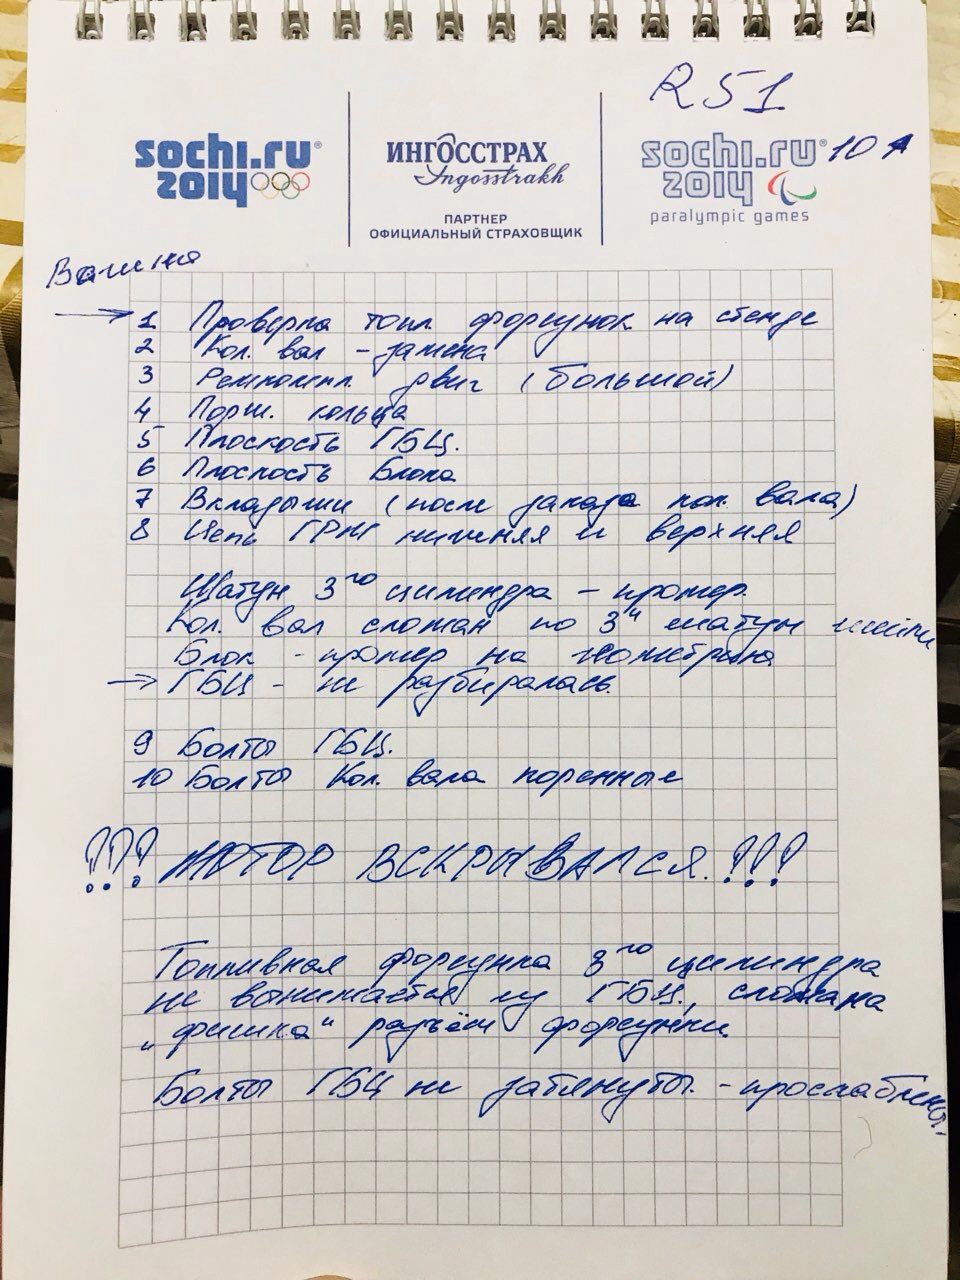 R51
sochi.ru®
2014
ИНГОССТРАХ
Ingosstrakh
ПАРТНЕР
ОФИЦИАЛЬНЫЙ СТРАХОВЩИК
sochi.ru®
2014
paralympic games
10
→ 1 Проверка топл форсунок на стенде
2 Кол. вал - замена
3 Ремкомпл. двиг (большой)
4 Порш. кольца
5 Плоскость ГБЦ.
6 Плоскость Блока
7 Вкладыши (после заказа кол. вала)
8 Цепь ГРМ нижняя и верхняя
Шатун 3го цилиндра - промер.
Кол. вал сломан по 3й шатун шейки
Блок - промер на геометрию
→ ГБЦ - не разбиралась.
9 Болты ГБЦ.
10 Болты Кол. вала коренные
!!! МОТОР ВСКРЫВАЛСЯ. !!!
Топливная форсунка 3го цилиндра
не вынимается из ГБЦ, сломана
„фишка" разъём форсунки.
Болты ГБЦ не затянуты. - прослаблены.